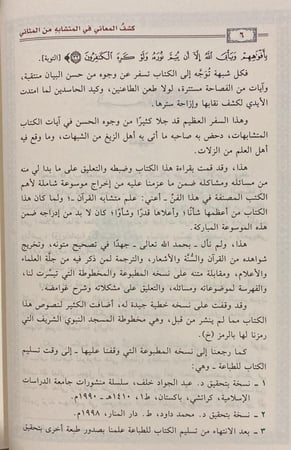 ٦
كشف المعاني في المتشابه من المثاني
بِأَفْوَاهِهِمْ وَيَأْبَى اللَّهُ إِلَّا أَن يُتِمَّ نُورَهُ وَلَوْ كَرِهَ الْكَافِرُونَ ﴿٣٢﴾ [التوبة].
فكل شبهة تُوَجَّه إلى الكتاب تسفر عن وجوه من حسن البيان منتقبة،
وآيات من الفصاحة مستترة، لولا طعن الطاعنين، وكيد الحاسدين لما امتدت
الأيدي لكشف نقابها وإزاحة سترها.
وهذا السفر العظيم قد جلا كثيرًا من وجوه الحسن في آيات الكتاب
المتشابهات، دحض به صاحبه ما أتى به أهل الزيغ من الشبهات، وما وقع فيه
أهل العلم من الزلات.
هذا، وقد قمت بقراءة هذا الكتاب وضبطه والتعليق على ما بدا لي منه
من مسائله ومشاكله ضمن ما عزمنا عليه من إخراج موسوعة شاملة لأهم
الكتب المصنفة في هذا الفنّ ـ أعني: علم متشابه القرآن ـ ولما كان هذا
الكتاب من أعظمها شأنًا، وأعلاها قدرًا وشأوًا؛ كان لا بد من إدراجه ضمن
هذه الموسوعة المباركة.
هذا، ولم نأل ـ بحمد الله تعالى ـ جهدًا في تصحيح متونه، وتخريج
شواهده من القرآن والسُّنَّة والأشعار، والترجمة لمن ذكر فيه من جلّة العلماء
والأعلام، ومقابلة متنه على نسخه المطبوعة والمخطوطة التي تيسَّرت لنا،
والفهرسة لموضوعاته ومسائله، والتعليق على مشكلاته وشرح غوامضه.
وقد وقفت على نسخة خطية جيدة له، أضافت الكثير لنصوص هذا
الكتاب مما لم ينشر من قبل، وهي مخطوطة المسجد النبوي الشريف التي
رمزنا لها بالرمز (خ).
كما رجعنا إلى نسخه المطبوعة التي وقفنا عليها ـ إلى وقت تسليم
الكتاب للطباعة ـ وهي:
١ ـ نسخة بتحقيق د. عبد الجواد خلف، سلسلة منشورات جامعة الدراسات
الإسلامية، كراتشي، باكستان، ط١، ١٤١٠هـ ـ ١٩٩٠م.
٢ ـ نسخة بتحقيق د. محمد داود، ط. دار المنار، ١٩٩٨م.
٣ ـ بعد الانتهاء من تسليم الكتاب للطباعة علمنا بصدور طبعة أخرى بتحقيق